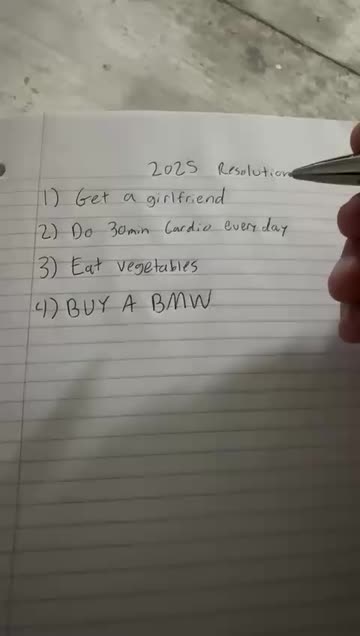 2025 Resolution
1) Get a girlfriend
2) Do 30min Cardio everyday
3) Eat vegetables
4) BUY A BMW